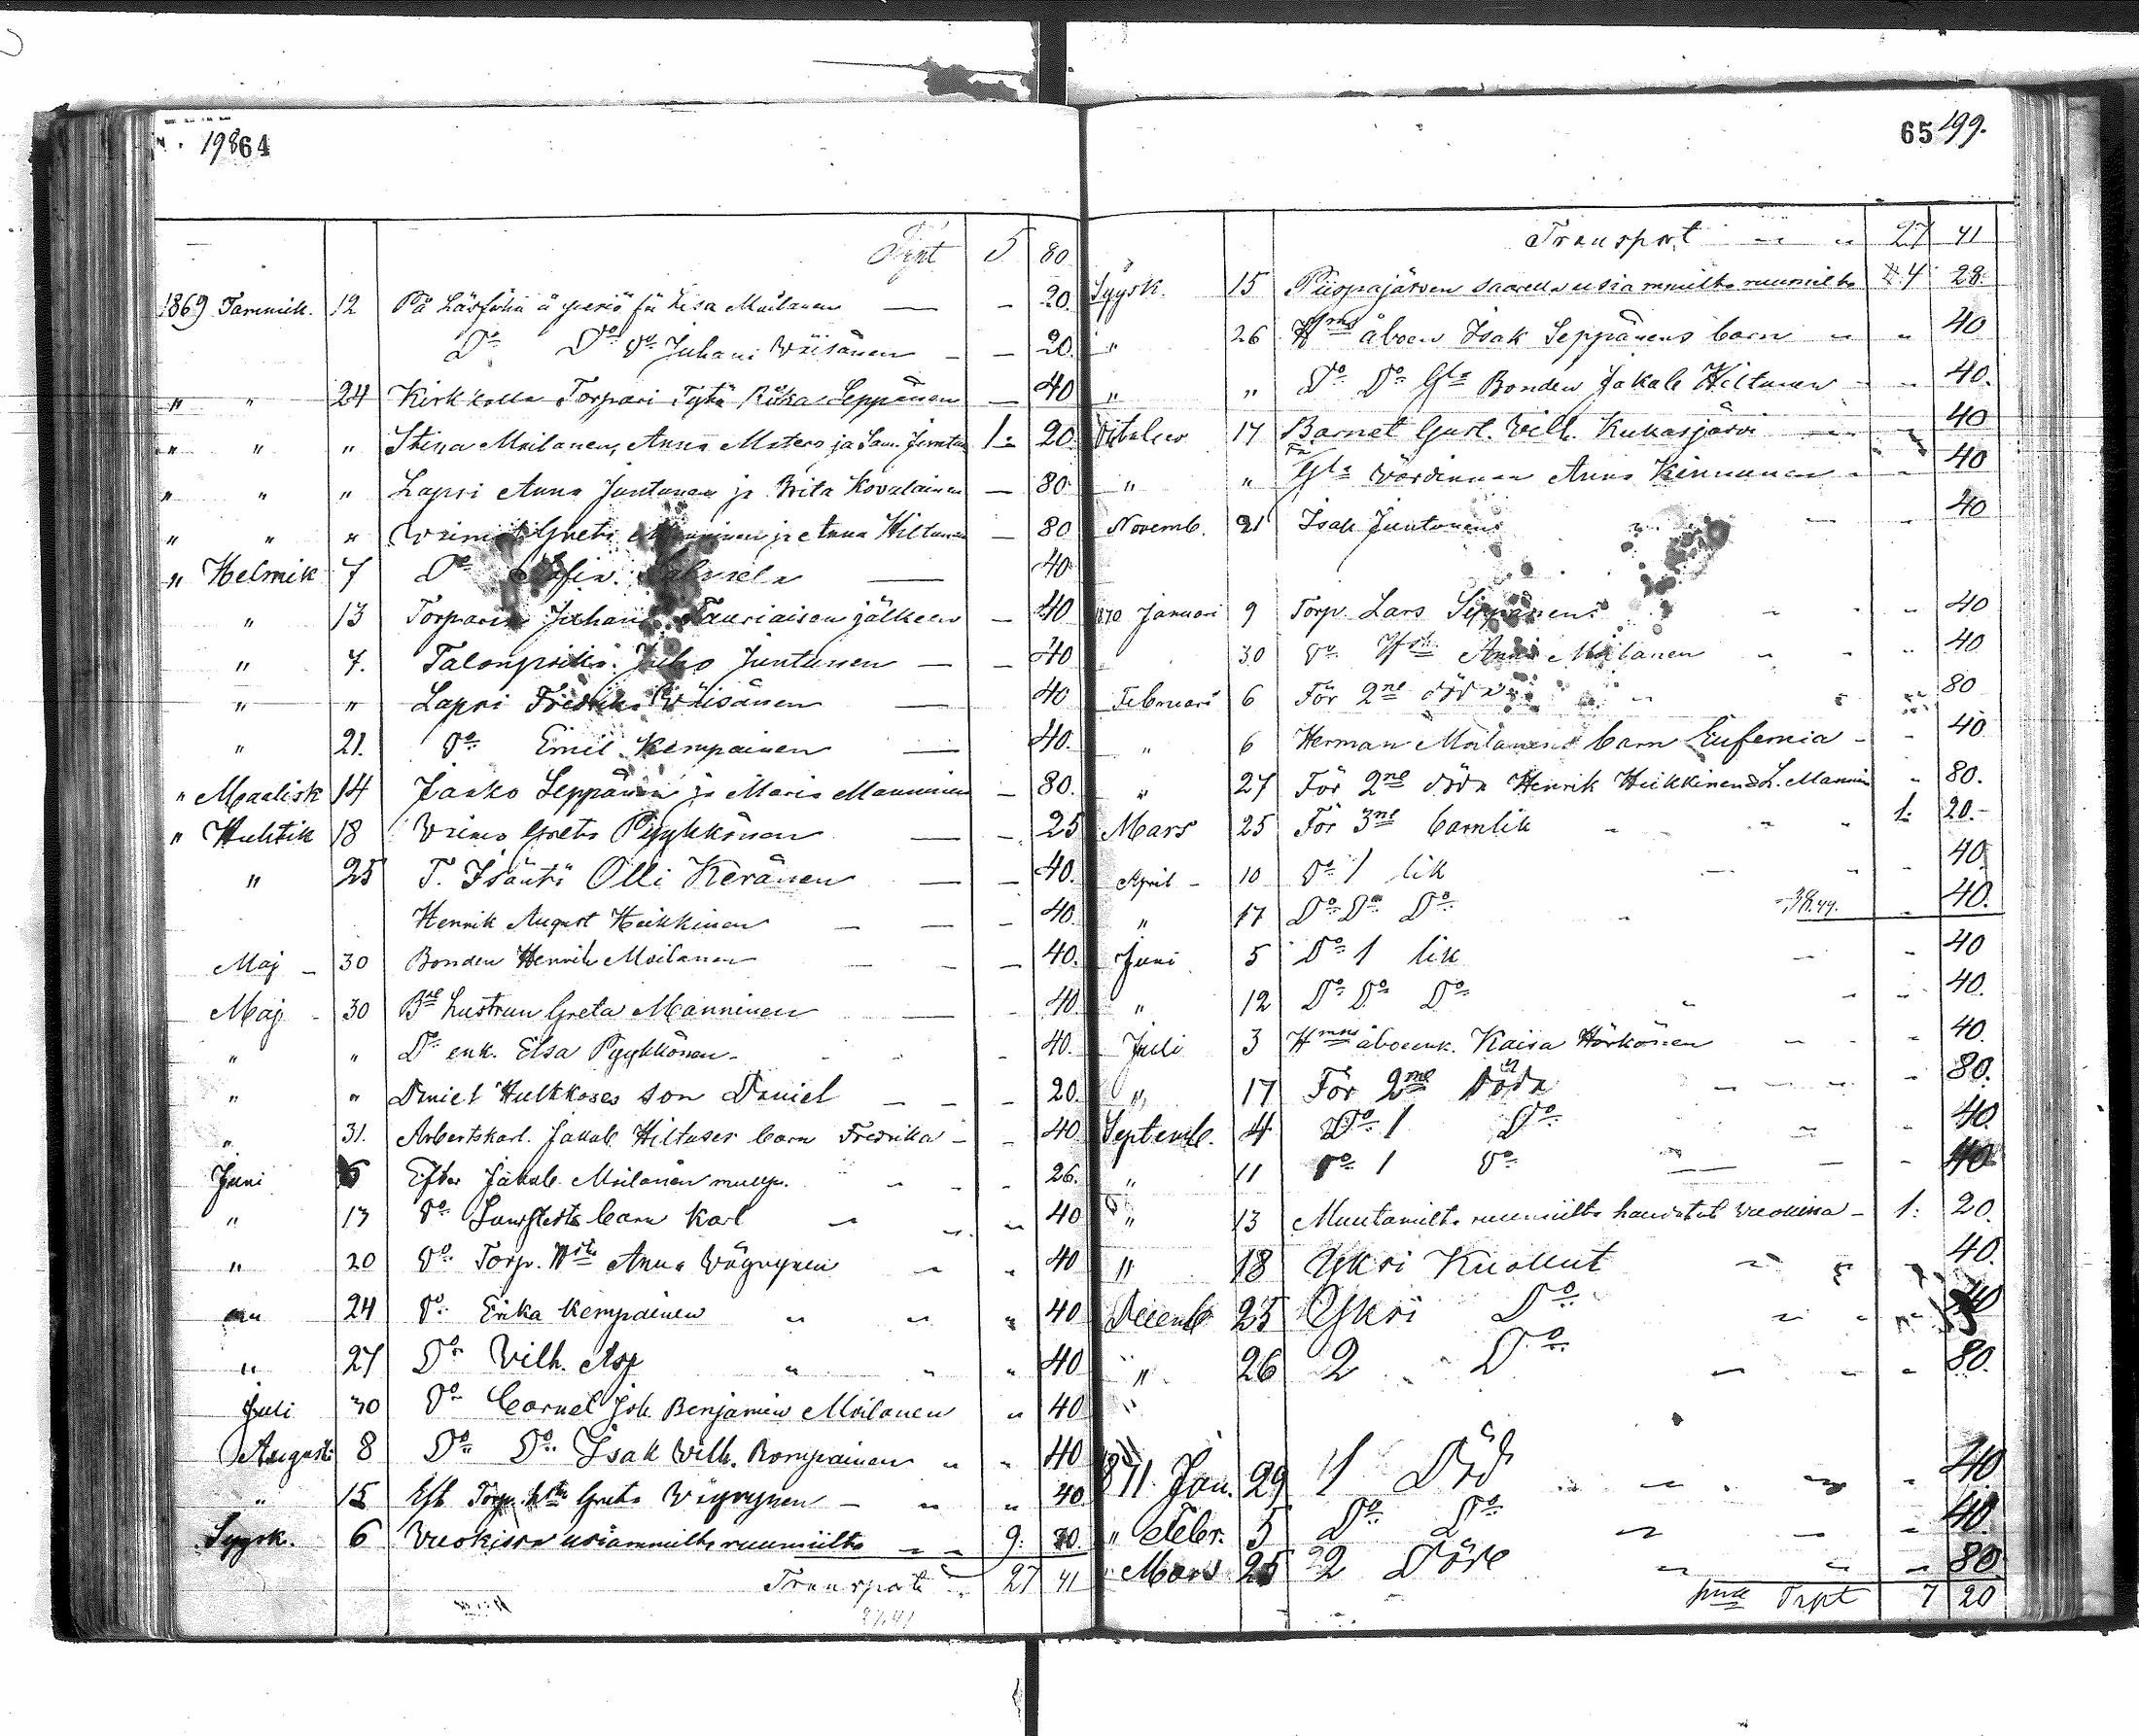 198 64
Trpt 5 80
1869 Tammik. 12 På Lisa Moilanen — — 20.
Do Do Do Juhani Wäisänen — — 20.
" " 24 Kirkkolla Torpari Tytä Riika Seppänen — 40
" " " Stina Moilanen, Anna Matero ja Sam. Juntun 1: 20
" " " Lapsi Anna Juntunen ja Brita Kovalainen — 80.
" " " Waimot Greta Manninen ja Anna Hiltunen — 80
" Helmik 7 Do — 40
" 13 Torparin Juhani Tauriaisen jälkeen — 40
" 7. Talonpoika Juho Juntunen — — 40
" " Lapsi Fredrik Wäisänen — 40
" 21. Do Emil Kempainen — 40.
" Maalisk 14 Jaako Seppänen ja Maria Manninen — 80.
" Huhtik 18 Waimo Greta Pyykkönen — — 25
" 25 T. Isäntä Olli Keränen — — 40.
Henrik August Heikkinen — — — 40.
Maj — 30 Bonden Henrik Moilanen — — — 40.
Maj — 30 Bde hustrun Greta Manninen — — 40.
" " Do enk. Elsa Pyykkönen — — 40.
" " Daniel Hulkkoses son Daniel — — — 20.
" 31. Arbetskarl. Jakob Hiltuses barn Fredrika — — 40
Juni 6 Efter Jakob Moilanen — — — 26.
" 13 Do barn Karl — " " 40
" 20 Do Torp. Anna Väyrynen " " 40
" " 24 Do Erika Kempainen " " " 40
" 27 Do Vilh. Asp " " " 40
Juli 30 Do Barnet Joh. Benjamin Moilanen " 40
August 8 Do Do Isak Vilh. Kempainen " " 40
" 15 Eft Torp. Greta Väyrynen — " " 40
Syysk. 6 Vuokissa usiammilta ruumiilta — — 9. 20.
Transport 27 41
27,41
65 199.
Transport " " 27 41
Syysk. 15 Piispajärven saarella usiammilta ruumilta 4 28.
" 26 Hmns åboen Isak Seppänens barn " " 40
" " Do Do Gla Bonden Jakob Hiltunen — " 40.
Oktober 17 Barnet Gust. Vilh. Kukasjärvi — 40
" " Gla Värdinnan Anna Kinnunen — — 40
Novemb. 21 Isak Juntunens — — 40
1870 Januari 9 Torp. Lars Seppänens " " " 40
30 Do Anna Moilanen " " " 40
Februari 6 För 2ne döda " 80
" 6 Herman Moilanens barn Eufemia — — 40
" 27 För 2ne döda Henrik Heikkinen & L. Mannin " 80.
Mars 25 För 3ne barnlik " " " 1. 20.—
April — 10 Do 1 lik — — — 40.
" 17 Do Do Do 38.49. " 40.
Juni 5 Do 1 lik — — 40
" 12 Do Do Do " — — 40.
Juli 3 Hmns åboenk. Kaisa Härkönen — — — 40.
" 17 För 2ne döda — — — — 80.
Septemb. 4 Do 1 Do — — 40.
" 11 Do 1 Do — — — 40
" 13 Muutamilta ruumiilta haudatut Vuokissa — 1. 20.
" 18 Yksi Kuollut — 40.
Decemb 25 Yksi Do " " 40
" 26 2 Do — — — 80.
"
1871 Jan. 29 1 Död " — — 40
" Febr. 5 Do Do — — — 40.
" Mars 25 2 Döde — — — 80
Trpt 7 20